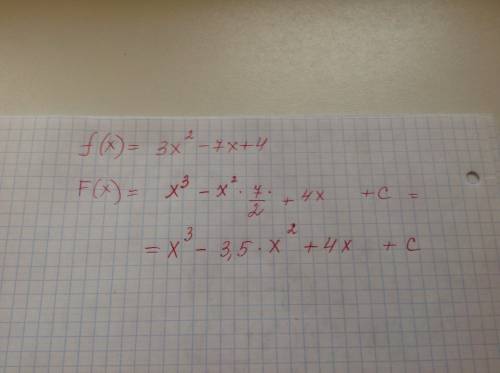 f(x) = 3x² - 7x + 4
F(x) = x³ - x² · 7/2 · + 4x + c =
= x³ - 3,5 · x² + 4x + c